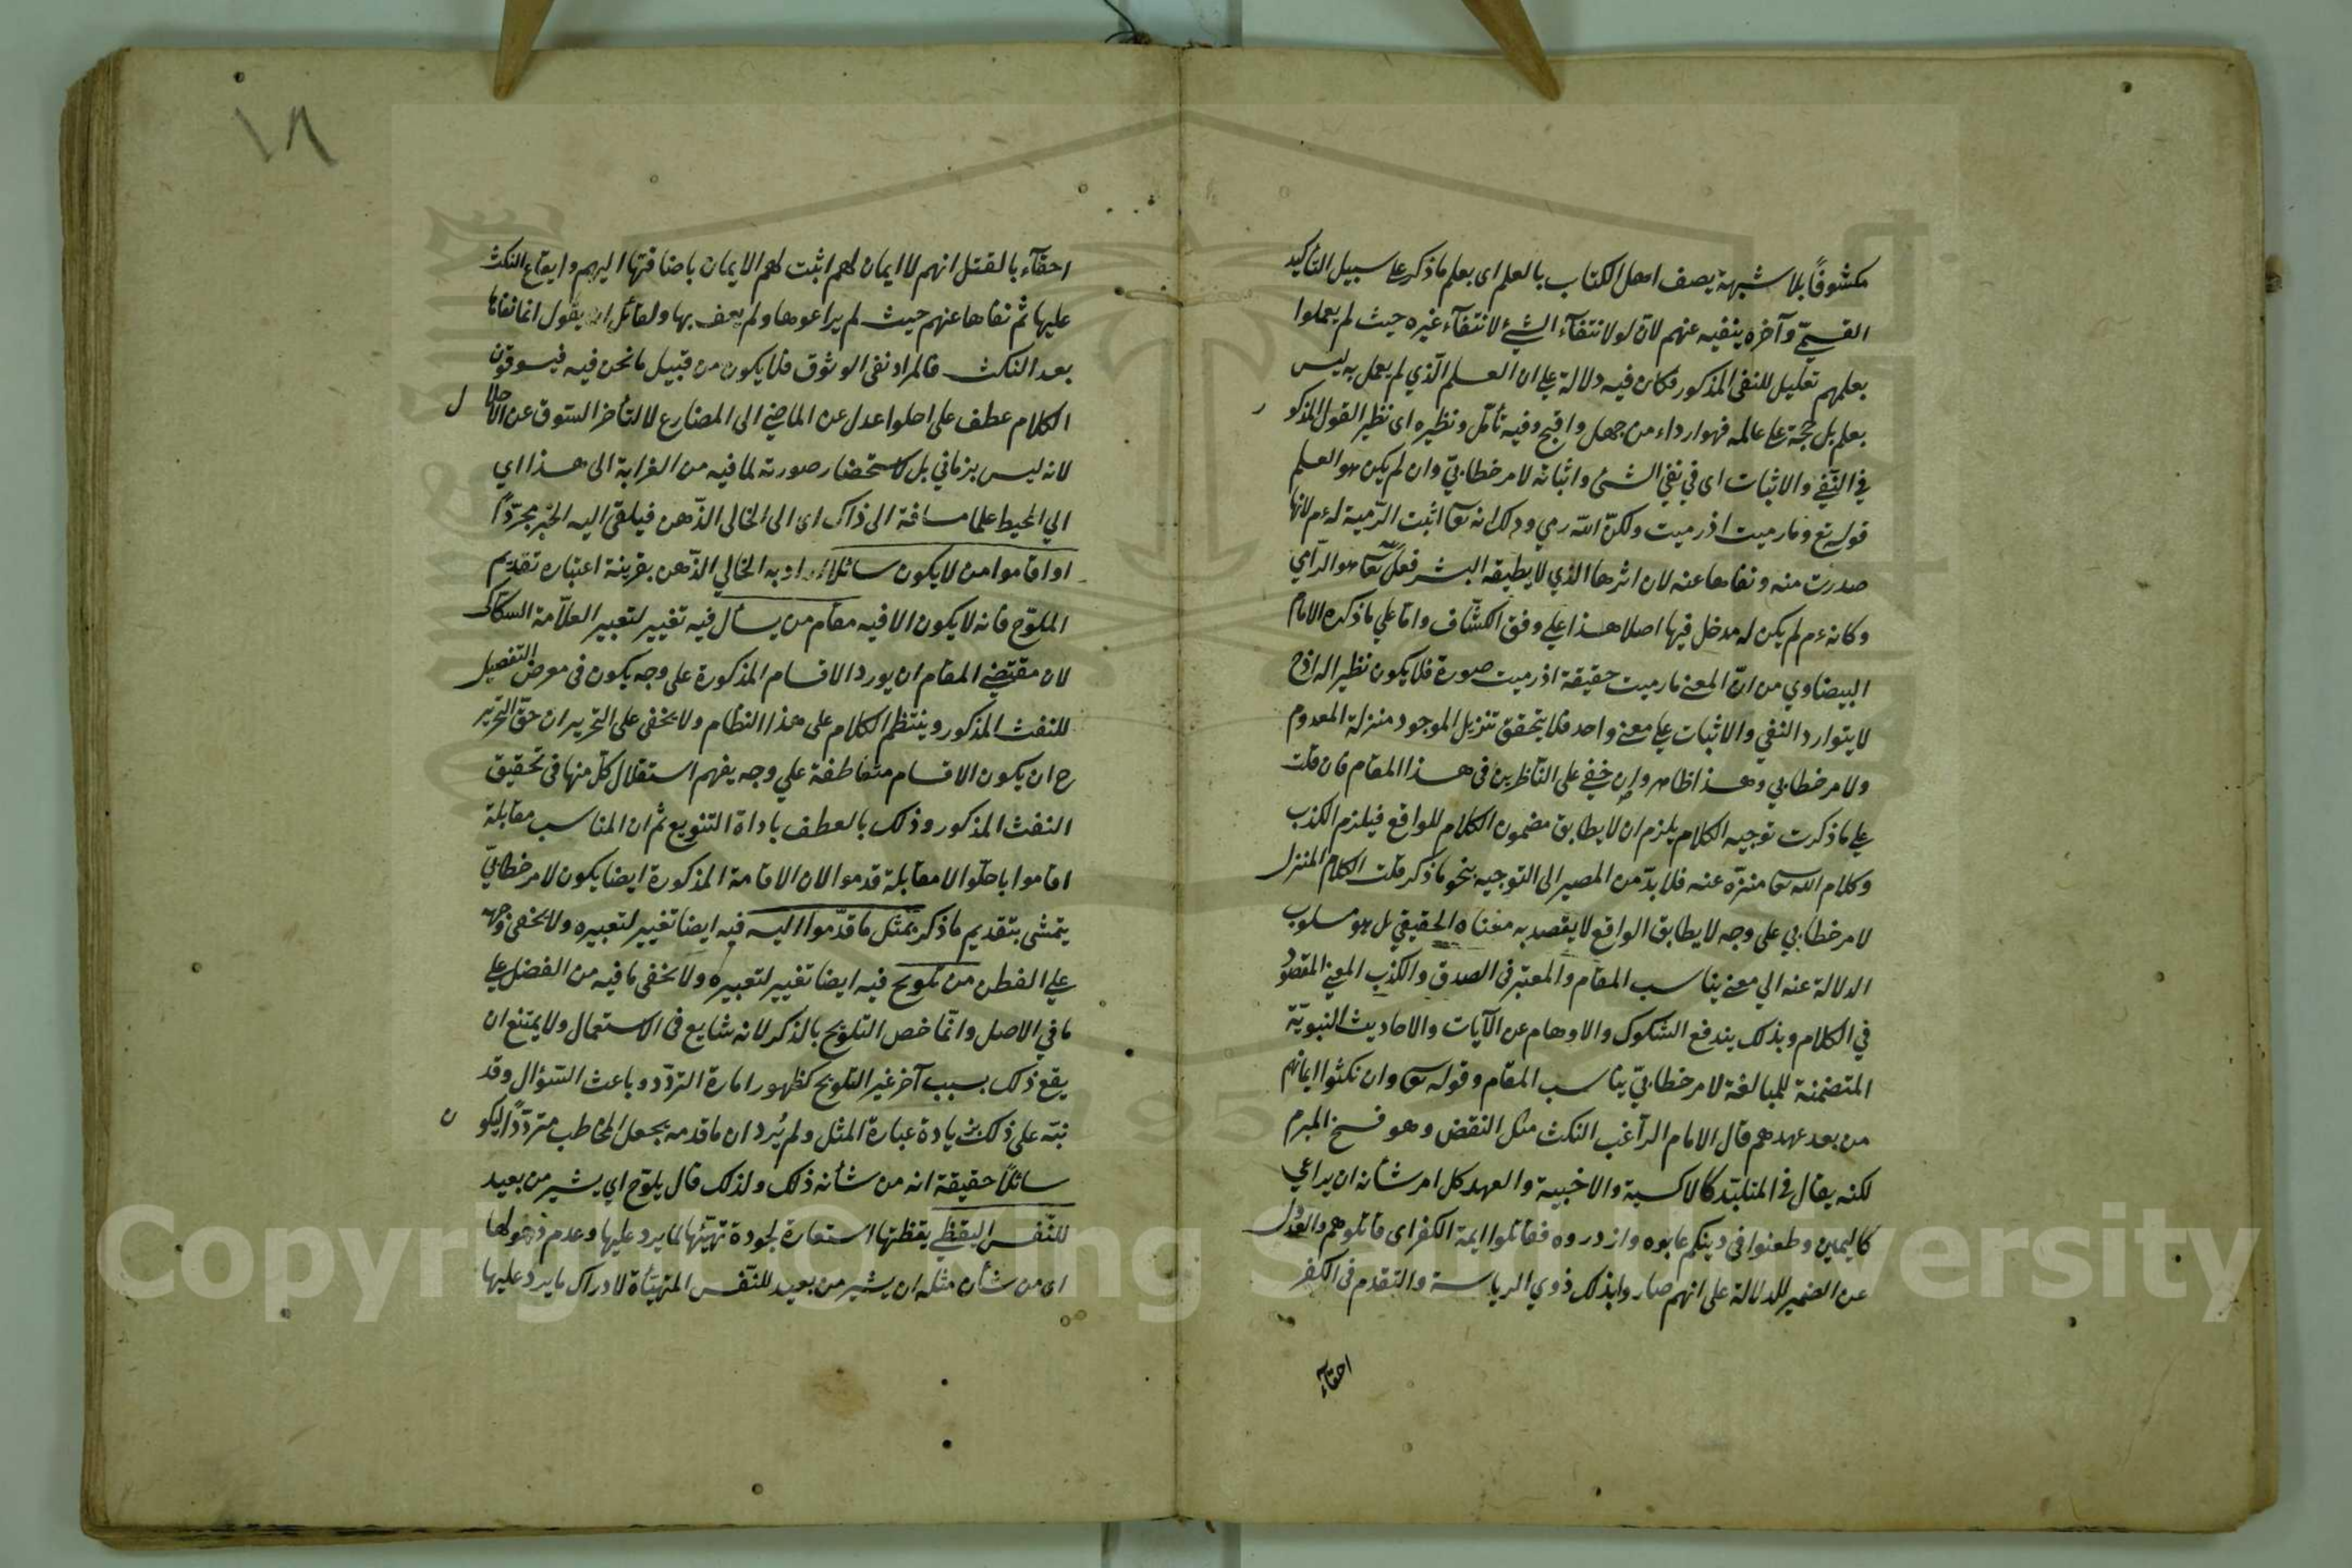 مكشوفاً بلا شبهة يصف اهل الكتاب بالعلم اى بعلم ما ذكر على سبيل التأكيد
القسمىّ وآخره ينفيه عنهم لانّ لو لانتفآء الشئ لانتفآء غيره حيث لم يعملوا
بعلمهم تعليل للنفى المذكور فكان فيه دلالة على ان العلم الّذي لم يعمل به ليس
بعلم بل حجة على عالمه فهو ارداء من جهل واقبح وفيه تأمّل ونظيره اى نظير القول المذكور
في النّفي والاثبات اى في نفي الشئ واثباته لامر خطابيّ وان لم يكن هو العلم
قوله تع وما رميت اذ رميت ولكنّ الله رمي وذلك انه تعا اثبت الرّمية له عم لانها
صدرت منه ونفاها عنه لان اثرها الذي لا يطيقه البشر فعل الله تعا هو الرّامي
وكانه عم لم يكن له مدخل فيها اصلا هذا على وفق الكشّاف وامّا علي ما ذكره الامام
البيضاوي من انّ المعنى ما رميت حقيقة اذ رميت صورة فلا يكون نظيرا له اذ ح
لا يتوارد النفي والاثبات على معنى واحد فلا يتحقق تنزيل الموجود منزلة المعدوم
ولا مر خطابي وهذا ظاهر وان خفي على النّاظرين في هذا المقام فان قلت
على ما ذكرت توجيه الكلام يلزم ان لا يطابق مضمون الكلام للواقع فيلزم الكذب
وكلام الله تعا منزّه عنه فلا بدّ من المصير الى التوجيه بنحو ما ذكر قلت الكلام المنزل
لامر خطابي على وجه لا يطابق الواقع لا يقصد به معناه الحقيقي بل هو مسلوب
الدلالة عنه الي معنى يناسب المقام والمعتبر في الصدق والكذب المعنى المقصود
في الكلام وبذلك يندفع الشكوك والاوهام عن الآيات والاحاديث النبويّة
المتضمنة للمبالغة لامر خطابيّ يناسب المقام وقوله تعا وان نكثوا ايمانهم
من بعد عهدهم قال الامام الرّاغب النكث مثل النقض وهو فسخ المبرم
لكنه يقال في المتلبّد كالاكسية والاخبية والعهد كل امر شأنه ان يراعي
كاليمين وطعنوا في دينكم عابوه وازدروه فقاتلوا ايمة الكفر اى قاتلوهم والعدول
عن الضمير للدلالة على انهم صاروا بذلك ذوي الرياسة والتقدم في الكفر
احقآء
١٨
احقآء بالقتل انهم لا ايمان لهم اثبت لهم الايمان باضافتها اليهم وايقاع النكث
عليها ثم نفاها عنهم حيث لم يراعوها ولم يعف بها ولقائل ان يقول انما نفاها
بعد النكث فالمراد نفى الوثوق فلا يكون من قبيل ما نحن فيه فيسوقون
الكلام عطف على احلوا عدل عن الماضي الى المضارع لا لتأخر السّوق عن الاحلال
لانه ليس بزماني بل لاستحضار صورته لما فيه من الغرابة الى هذا اي
الي المحيط علما مسافة الى ذاك اى الى الخالى الذّهن فيلقى اليه الخبر مجرّدًا
او اقاموا من لا يكون سائلا اراد به الخالي الذّهن بقرينة اعتباره تقديم
الملوّح فانه لا يكون الا فيه مقام من يسأل فيه تغيير لتعبير العلّامة السكّاكى
لان مقتضى المقام ان يورد الاقسام المذكورة على وجه يكون في معرض التفصيل
للنفث المذكور وينتظم الكلام على هذا النظام ولا يخفى على النحرير ان حقّ التحرير
ح ان يكون الاقسام متعاطفة علي وجه يفهم استقلال كلّ منها في تحقيق
النفث المذكور وذلك بالعطف باداة التنويع ثم ان المناسب مقابلة
اقاموا باحلّوا لا مقابلة قدموا لان الاقامة المذكورة ايضا يكون لامر خطابيّ
يتمشى بتقديم ما ذكر بمثل ما قدّموا اليه فيه ايضا تغيير لتعبيره ولا يخفى وجهه
علي الفطن من تلويح فيه ايضا تغيير لتعبيره ولا يخفى ما فيه من الفضل على
ما في الاصل وانّما خص التلويح بالذكر لانه شايع في الاستعمال ولا يمتنع ان
يقع ذلك بسبب آخر غير التلويح كظهور امارة التردّد وباعث السّؤال وقد
نبّه على ذلك بزيادة عبارة المثل ولم يُرد ان ما قدمه يجعل المخاطب متردّدًا ليكون
سائلاً حقيقة انه من شأنه ذلك ولذلك قال يلوّح اي يشير من بعيد
للنّفس اليقظى يقظتها استعارة لجودة تهيّئها لما يرد عليها وعدم ذهولها
اى من شأن مثله ان يشير من بعيد للنّفس المتهيّأة لادراك ما يرد عليها
Copyright © King Saud University